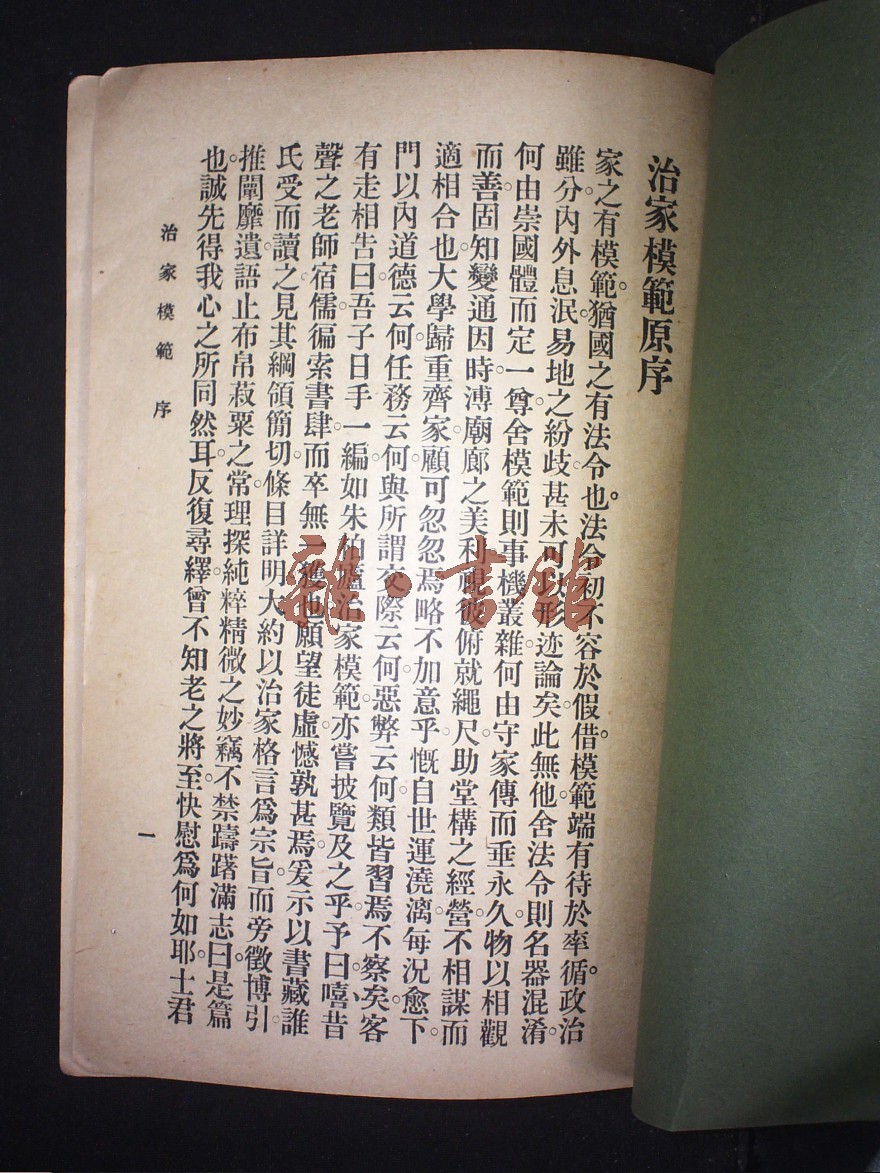 治家模範原序
家之有模範。猶國之有法令也。法令初不容於假借。模範端有待於率循。政治
雖分內外。息泯易地之紛歧。甚未可以形迹論矣。此無他。舍法令則名器混淆。
何由崇國體而定一尊。舍模範則事機叢雜。何由守家傳而垂永久。物以相觀
而善。固知變通因時。溥廟廊之美利。視彼俯就繩尺。助堂構之經營。不相謀而
適相合也。大學歸重齊家。顧可忽忽焉略不加意乎。慨自世運澆漓。每況愈下。
門以內道德云何。任務云何。與所謂交際云何。惡弊云何。類皆習焉不察矣。客
有走相告曰。吾子日手一編。如朱柏廬治家模範。亦嘗披覽及之乎。予曰。嘻、昔
聲之老師宿儒。徧索書肆。而卒無一獲也。願望徒虛。憾孰甚焉。爰示以書。藏誰
氏。受而讀之。見其綱領簡切。條目詳明。大約以治家格言爲宗旨。而旁徵博引。
推闡靡遺。語止布帛菽粟之常。理探純粹精微之妙。竊不禁躊躇滿志曰。是篇
也。誠先得我心之所同然耳。反復尋繹。曾不知老之將至。快慰爲何如耶。士君
治家模範 序
一
雜·書館